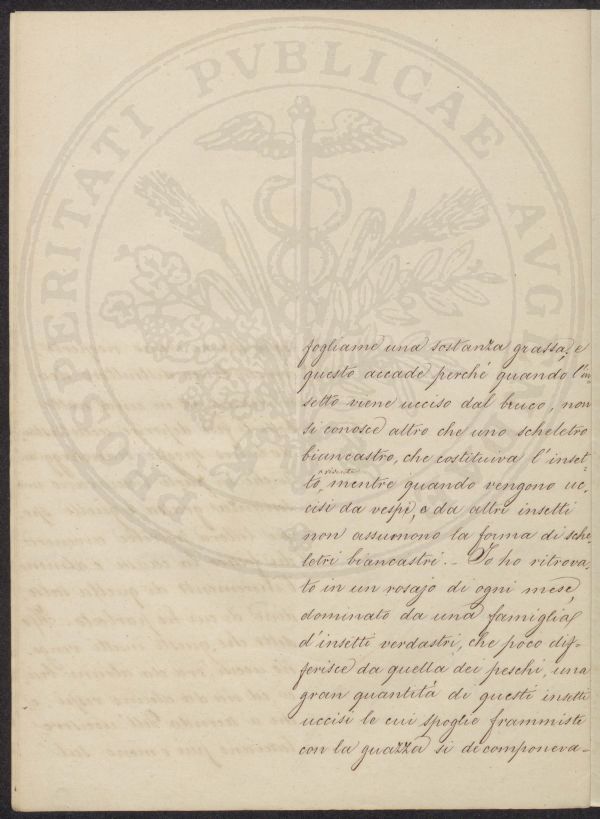 PROSPERITATI PVBLICAE AVGE
fogliame una sostanza grassa, e
questo accade perché quando l'in-
setto viene ucciso dal bruco, non
si conosce altro che uno scheletro
biancastro, che costituiva l'inset-
to, mentre quando vengono uc-
cisi da vespi, e da altri insetti
non assumono la forma di sche-
letri biancastri. - Io ho ritrova-
to in un rosajo di ogni mese,
dominato da una famiglia
d'insetti verdastri, che poco dif-
ferisce da quella dei peschi, una
gran quantità di questi insetti
uccisi le cui spoglie frammiste
con la guazza si decomponeva-